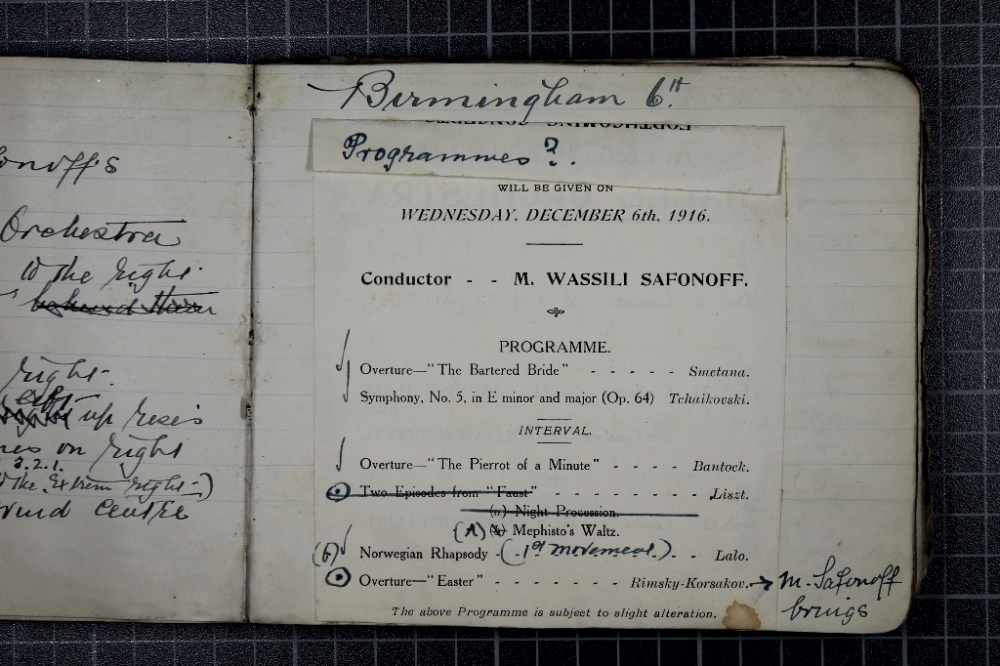 Orchestra
to the right.
behind them
right.
up risers
on right
3.2.1.
the Extreme right -)
centre
Birmingham 6th.
FORTHCOMING CONCERTS
Programmes?.
WILL BE GIVEN ON
WEDNESDAY, DECEMBER 6th, 1916.
Conductor - - M. WASSILI SAFONOFF.
PROGRAMME.
Overture—"The Bartered Bride" - - - - - Smetana.
Symphony, No. 5, in E minor and major (Op. 64) Tchaikovski.
INTERVAL.
Overture—"The Pierrot of a Minute" - - - - Bantock.
Two Episodes from "Faust" - - - - - - - - Liszt.
(a) Night Procession.
(A) (b) Mephisto's Waltz.
(B) Norwegian Rhapsody (1st movement.) - - Lalo.
Overture—"Easter" - - - - - - - Rimsky-Korsakov. → M. Safonoff
brings
The above Programme is subject to slight alteration.